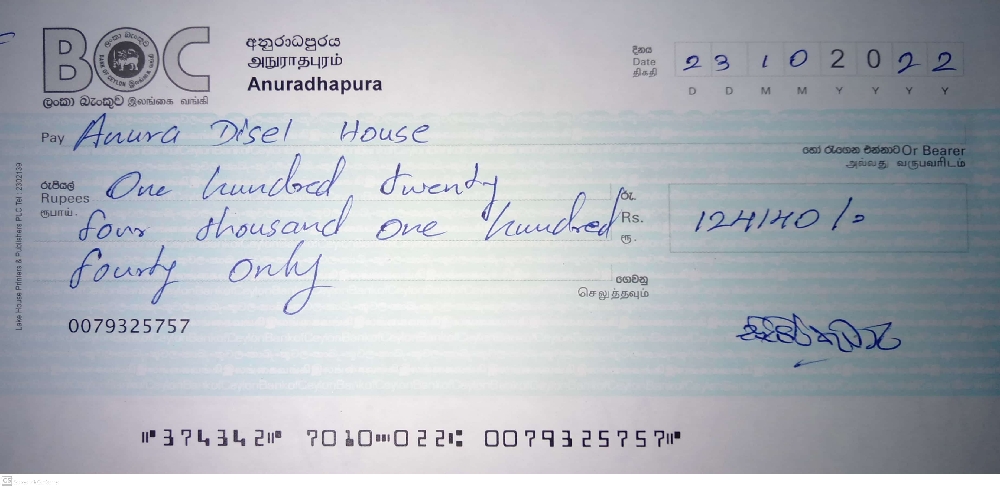 BOC
ලංකා බැංකුව இலங்கை வங்கி
අනුරාධපුරය
அநுராதபுரம்
Anuradhapura
දිනය
Date
திகதி
2 3 1 0 2 0 2 2
D D M M Y Y Y Y
Pay Anura Disel House
හෝ රැගෙන එන්නාට Or Bearer
அல்லது வருபவரிடம்
රුපියල්
Rupees
ரூபாய்
One hundred twenty
four thousand one hundred
fourty only
රු.
Rs.
ரூ.
124140/=
ගෙවනු
செலுத்தவும்
0079325757
Lake House Printers & Publishers PLC Tel : 2302139
⑈374342⑈ 7010⑉022⑆ 0079325757⑈